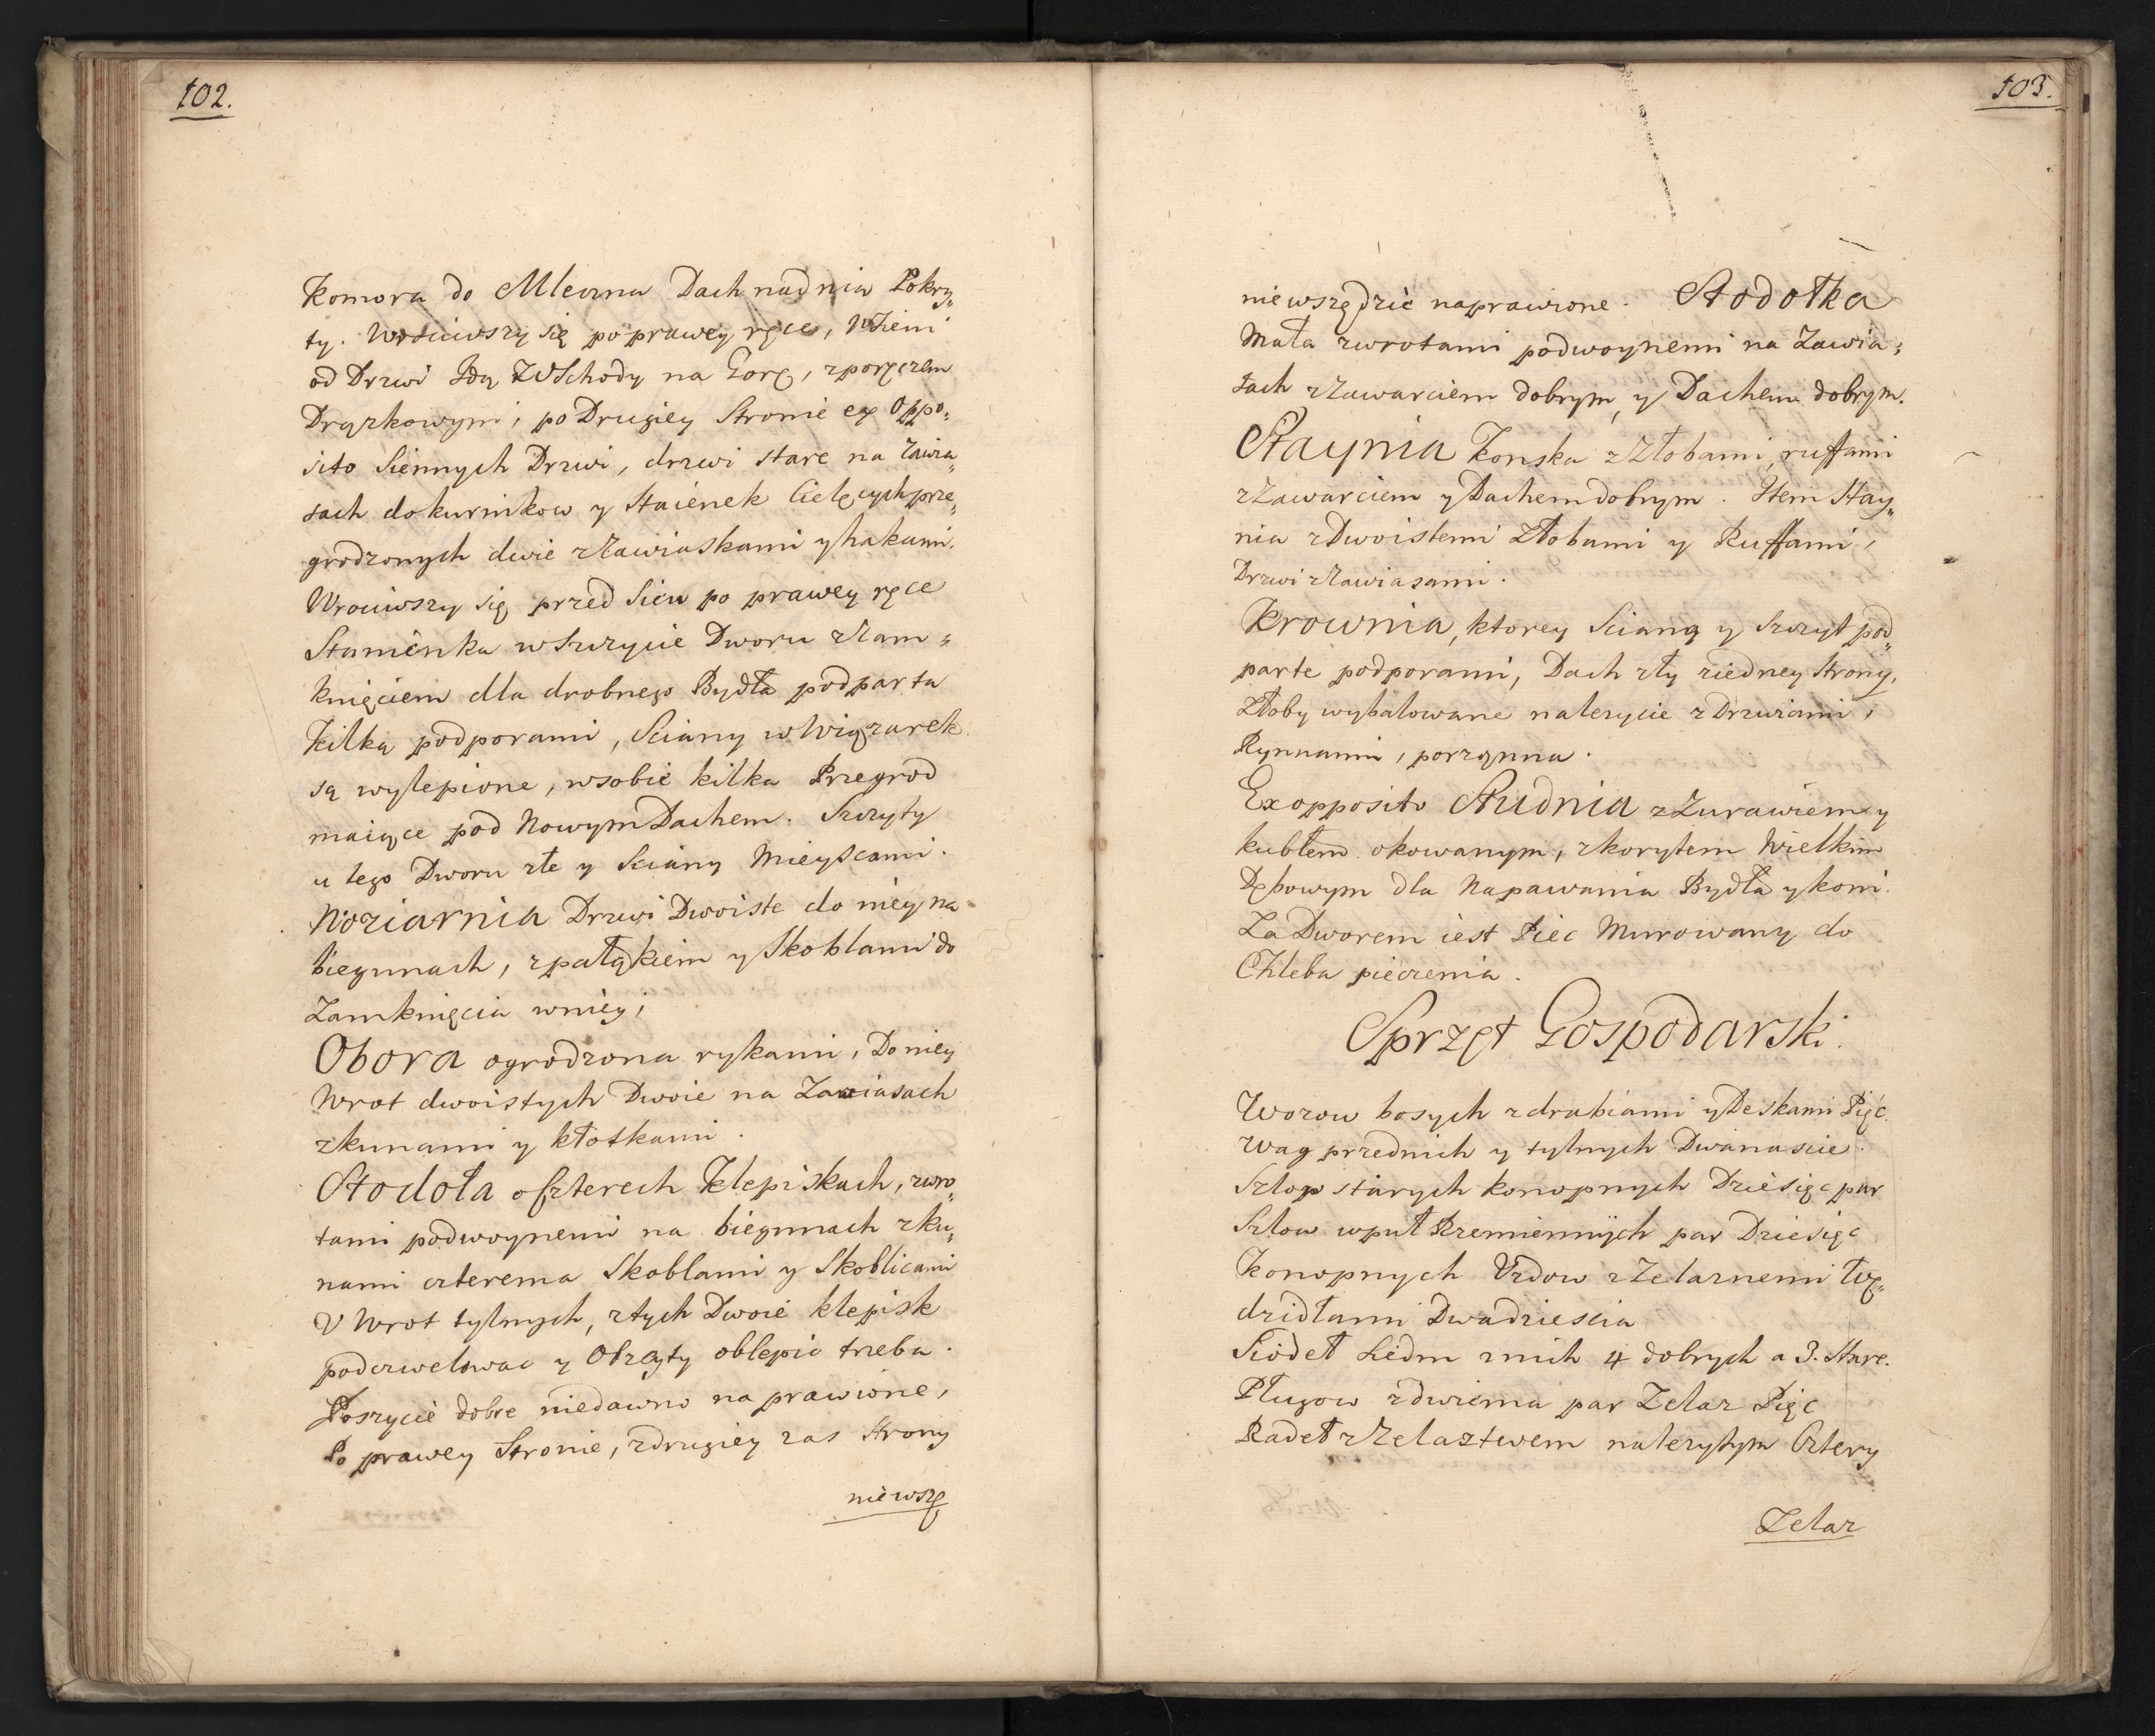 102.
Komora do Mleczna Dach nad nia Pokry„
ty. Wrociwszy się po prawey ręce, W Sieni
od Drzwi Idą WSchody na Gorę, z poręczem
Drązkowym, po Drugiey Stronie ex Oppo„
sito Siennych Drzwi, drzwi stare na Zawia„
sach do kurnikow y Staienek Cielęcych prze„
grodzonych dwie z Zawiaskami y hakami.
Wrociwszy się przed Sien po prawey ręce
Stanienka w Szczycie Dworu z Zam„
knięciem dla drobnego Bydła podparta
Kilką podporami, Sciany w Wiązarek
są wylepione, w sobie kilka Przegrod
maiące pod Nowym Dachem. Szczyty
u tego Dworu złe y Sciany Mieyscami.
Woziarnia Drzwi Dwoiste do niey na
biegunach, z pałąkiem y Skoblami do
Zamknięcia w niey,
Obora ogrodzona rykami, Do niey
Wrot dwoistych Dwoie na Zawiasach
z kunami y kłotkami.
Stodoła o Czterech Klepiskach, z wro„
tami podwoynemi na biegunach z ku„
nami czterema Skoblami y Skoblicami
U Wrot tylnych, z tych Dwoie klepisk
poderwelowac y Obzyty oblepic trzeba.
Poszycie dobre niedawno naprawione,
Po prawey Stronie, z drugiey zas Strony
nie wszę
103.
nie wszędzie naprawione. Stodołka
Mała z wrotami podwoynemi na Zawia„
sach z Zawarciem dobrym, y Dachem dobrym.
Staynia Konska z Złobami, ruffami
z Zawarciem y Dachem dobrym. Item Stay„
nia z Dwoistemi Złobami y Ruffami,
Drzwi z Zawiasami.
Krownia, ktorey Scianą y Szczyt pod„
parte podporami, Dach zły z iedney Strony,
Złoby wybalowane nalezycie z Drzwiami,
Rynnami, porządna.
Ex opposito Studnia z Zurawiem y
kubłem okowanym, z korytem Wielkim
Dębowym dla Napawania Bydła y koni.
Za Dworem iest Piec Murowany do
Chleba pieczenia.
Sprzęt Gospodarski.
Wozow bosych z drabiami y Deskami Pięć.
Wag przednich y tylnych Dwanascie.
Szlop starych konopnych Dziesięc par
Szlow w puł Rzemiennych par Dziesięc
Konopnych Uzdow z Zelaznemi Wę„
dzidłami Dwadziescia
Siodeł Siedm z nich 4 dobrych a 3. Stare.
Pługow z dwiema par Zelaz Pięc
Radeł z Zelaztwem nalezytym Cztery
Zelaz